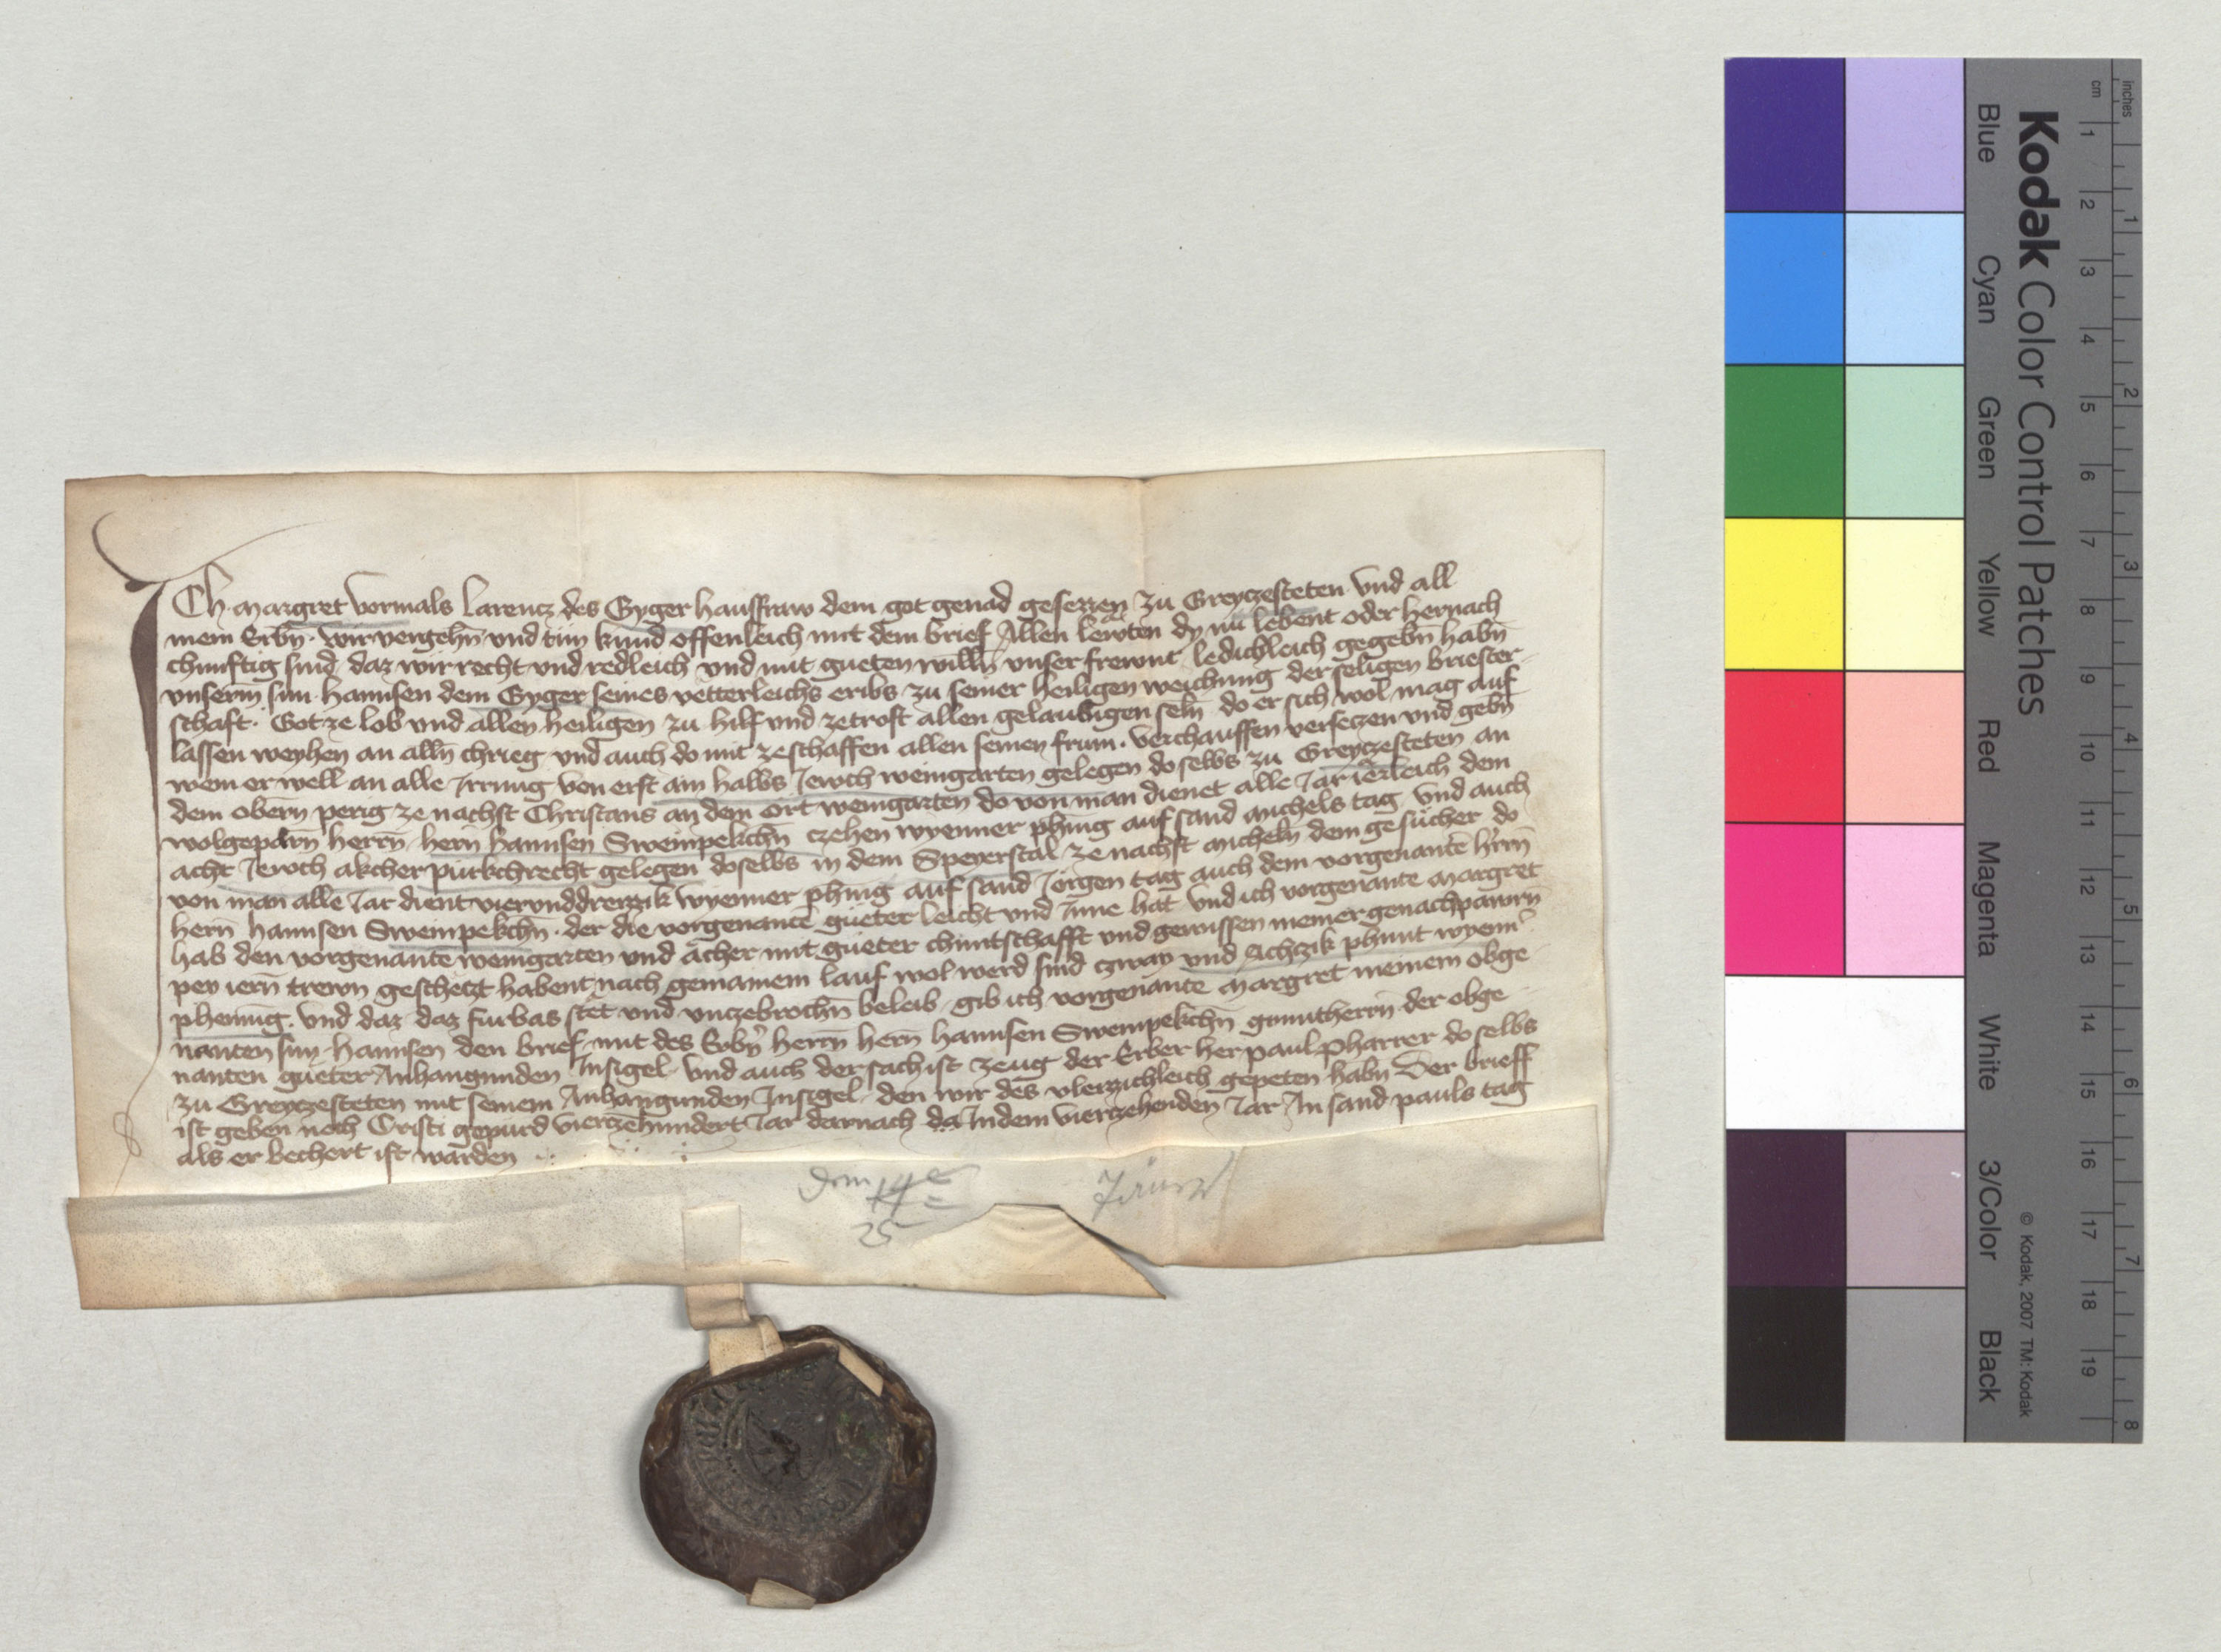 ICh margret vormals larencz des Gyger hausfraw dem got genad gesezzen zu Greyczesteten vnd all
mein Erbn̄ wir vergehn̄ vnd tun kund offenleich mit dem brief Allen lewten dy nu lebent oder hernach
chunftig sind daz wir recht vnd redleich vnd mit gueten willn̄ vnser frewnt ledichleich gegebn̄ habn̄
vnserm̄ sun hannsen dem Gyger seines vetterleichs eribs zu seiner heiligen weichung der seligen briester
schaft Got ze lob vnd allen heiligen zu hilf vnd ze trost allen gelaubigen seln̄ do er sich wol mag auf
lassen weyhen an alln̄ chrieg vnd auch do mit ze schaffen allen seinen frum verchauffen verseczen vnd gebn̄
wem er well an alle Irrung von erst ain halbs Jewch weingarten gelegen do selbs zu Greyczesteten an
dem obern̄ perig ze nachst Christans an dem Ort weingarten do von man dienet alle Jar ierleich dem
wolgeparn̄ herrn̄ hern̄ hannsen Sweinpekchn̄ czehen wyenner phing auf sand michels tag vnd auch
acht Jewch akcher purkchrecht gelegen doselbs in dem Speyerstal ze nachst micheln̄ dem gesucher do
von man alle Jar dient viervnddreyzzik wyenner phing auf sand Jorgen tag auch dem vorgenantē hrrn̄
hern̄ hannsen Sweinpekchn̄ der die vorgenantē gueter leicht vnd Inne hat vnd ich vorgenante margret
hab den vorgenantē weingarten vnd acher mit gueter chuntschafft vnd gewissen meiner genachpawrn̄
pey iern̄ trewn geschetzt habent nach gemainem lauf wol werd sind czway vnd Achczik phunt wyenn̄
phening vnd daz daz furbas stet vnd vnczebrochn̄ beleib gib ich vorgenante margret meinem obge
nanten sun hannsen den brief mit des Erbn̄ herrn̄ hern̄ hannsen Sweinpekchn̄ gruntherrn̄ der obge
nanten gueter Anhangunden Insigel vnd auch der sach ist zeug der Erber her paul pharrer do selbs
zu Greyczesteten mit seinem Anhangunden Insigel den wir des vleizzichleich gepeten habn̄ Der brieff
ist geben nach Cristi gepurd vierczehundert Jar darnach da Indem vierczehenden Jar An sand pauls tag
als er bechert ist warden
25
Jänner
Kodak Color Control Patches
Blue Cyan Green Yellow Red Magenta White 3/Color Black
© Kodak, 2007 TM: Kodak
cm 1 2 3 4 5 6 7 8 9 10 11 12 13 14 15 16 17 18 19
inches 1 2 3 4 5 6 7 8